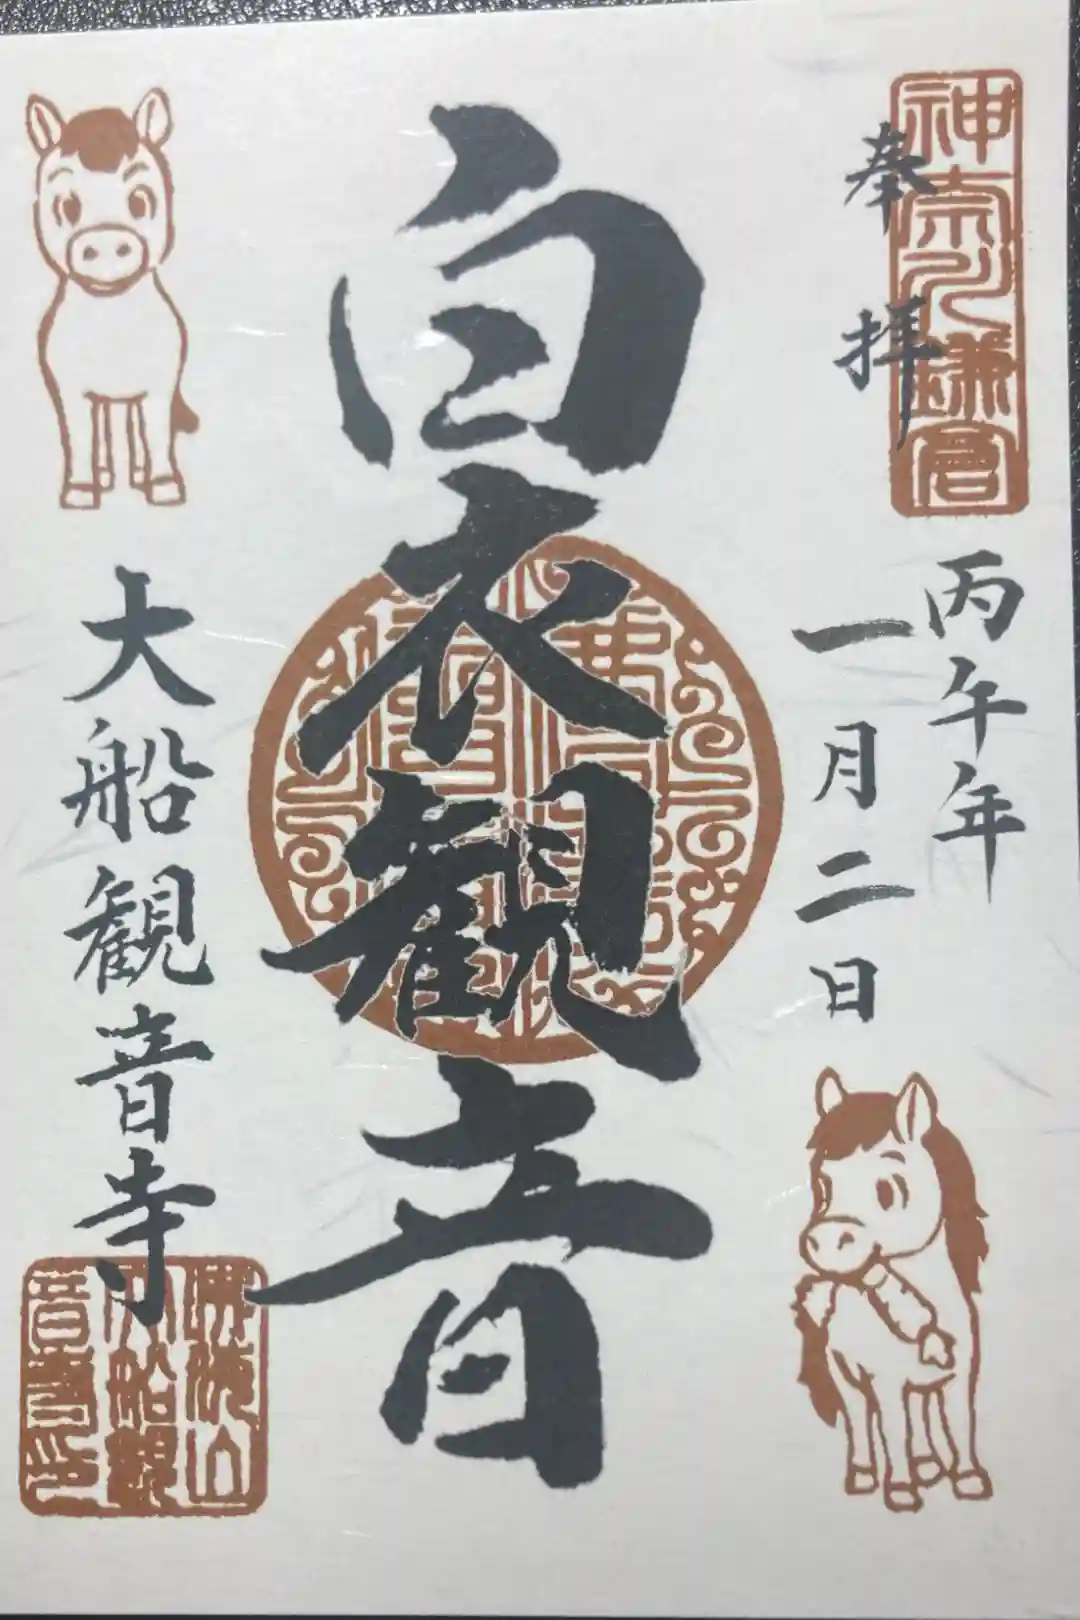 神奈川鎌倉
奉拝
丙午年
一月二日
白衣観音
大船観音寺
佛海山
大船観
音寺印